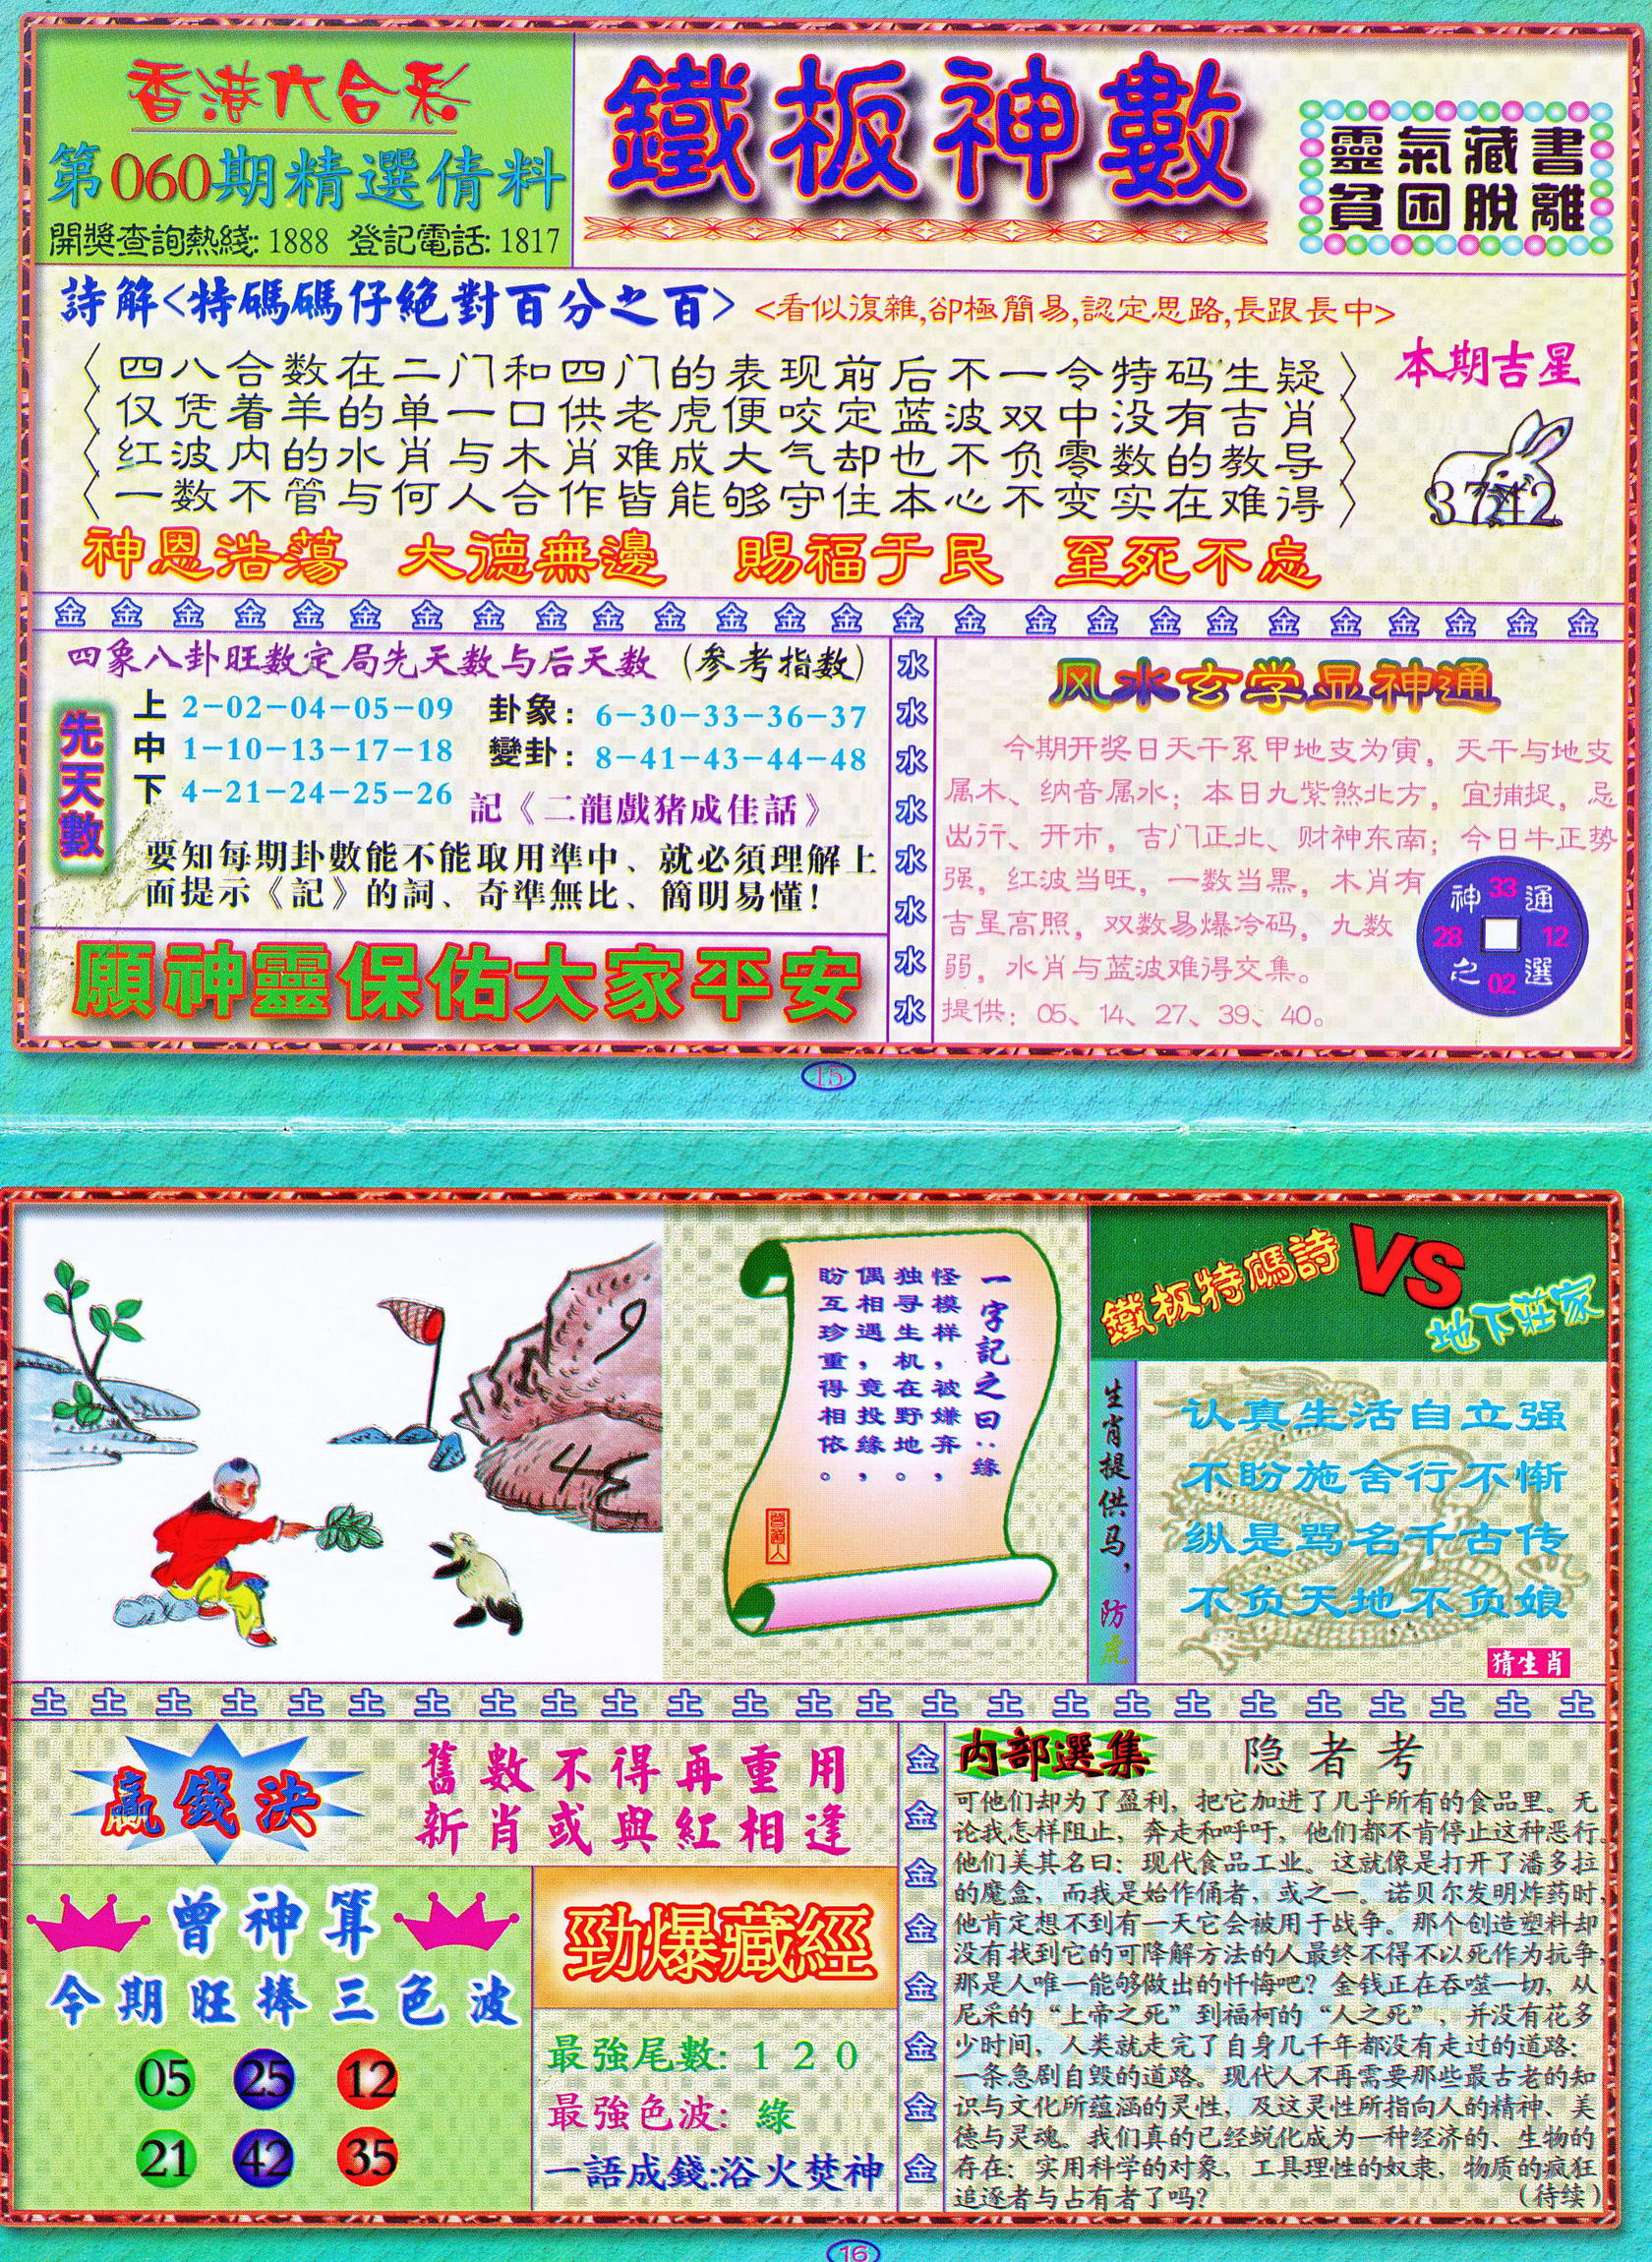 香港六合彩
第060期精選倩料
開獎查詢熱綫: 1888 登記電話: 1817
鐵板神數
靈氣藏書
貧困脫離
詩解<特碼碼仔絕對百分之百> <看似復雜,卻極簡易,認定思路,長跟長中>
四八合数在二门和四门的表现前后不一令特码生疑
仅凭着羊的单一口供老虎便咬定蓝波双中没有吉肖
红波内的水肖与木肖难成大气却也不负零数的教导
一数不管与何人合作皆能够守住本心不变实在难得
本期吉星
3742
神恩浩蕩 大德無邊 賜福于民 至死不忘
金金金金金金金金金金金金金金金金金金金金金金金金金金
四象八卦旺数定局先天数与后天数 (参考指数)
先天數
上 2-02-04-05-09 卦象: 6-30-33-36-37
中 1-10-13-17-18 變卦: 8-41-43-44-48
下 4-21-24-25-26
記《二龍戲猪成佳話》
要知每期卦數能不能取用準中、就必須理解上
面提示《記》的詞、奇準無比、簡明易懂!
願神靈保佑大家平安
水
水
水
水
水
水
水
水
风水玄学显神通
今期开奖日天干系甲地支为寅，天干与地支
属木、纳音属水；本日九紫煞北方，宜捕捉，忌
出行、开市，吉门正北、财神东南；今日牛正势
强，红波当旺，一数当黑，木肖有
吉星高照，双数易爆冷码，九数
弱，水肖与蓝波难得交集。
提供：05、14、27、39、40。
神 33 通
28 12
之 02 選
15
9
一字記之曰：缘
怪模样，被嫌弃，
独寻生机在野地。
偶相遇，竟投缘，
盼互珍重得相依。
鐵板特碼詩
VS
地下莊家
生肖提供马，防虎
认真生活自立强
不盼施舍行不惭
纵是骂名千古传
不负天地不负娘
猜生肖
土土土土土土土土土土土土土土土土土土土土土土土土土
赢錢決
舊數不得再重用
新肖或與紅相逢
曾神算
今期旺捧三色波
05 25 12
21 42 35
勁爆藏經
最強尾數: 1 2 0
最強色波: 綠
一語成錢:浴火焚神
金
金
金
金
金
金
金
金
内部選集 隐者考
可他们却为了盈利，把它加进了几乎所有的食品里。无
论我怎样阻止，奔走和呼吁，他们都不肯停止这种恶行。
他们美其名曰：现代食品工业。这就像是打开了潘多拉
的魔盒，而我是始作俑者，或之一。诺贝尔发明炸药时，
他肯定想不到有一天它会被用于战争。那个创造塑料却
没有找到它的可降解方法的人最终不得不以死作为抗争，
那是人唯一能够做出的忏悔吧？金钱正在吞噬一切，从
尼采的“上帝之死”到福柯的“人之死”，并没有花多
少时间，人类就走完了自身几千年都没有走过的道路：
一条急剧自毁的道路。现代人不再需要那些最古老的知
识与文化所蕴涵的灵性，及这灵性所指向人的精神、美
德与灵魂。我们真的已经蜕化成为一种经济的、生物的
存在：实用科学的对象，工具理性的奴隶，物质的疯狂
追逐者与占有者了吗？ (待续)
16